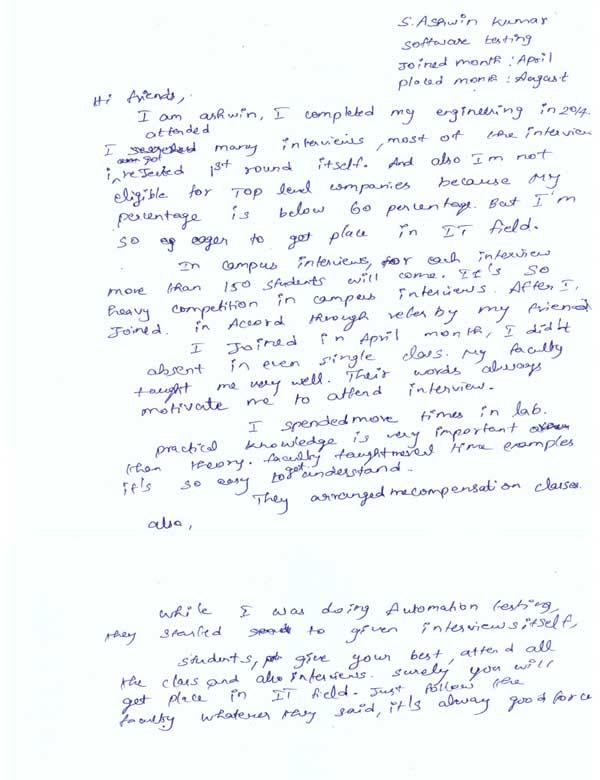 S. Ashwin Kumar
Software testing
Joined month : April
placed month : August
Hi friends,
I am ashwin, I completed my engineering in 2014.
attended
I many interviews, most of the interview
am got
in rejected 1st round itself. And also I'm not
eligible for Top level companies because my
percentage is below 60 percentage. But I'm
so eager to get place in IT field.
In campus interviews, for each interview
more than 150 students will come. It's so
heavy competition in campus interviews. After I,
Joined. in Accord through refer by my friend
I Joined in April month, I didn't
absent in even single class. My faculty
taught me very well. Their words always
motivate me to attend interview.
I spended more times in lab.
practical knowledge is very important
than theory. faculty taught me real time examples
get
it's so easy to understand.
They arranged me compensation classes
also,
While I was doing Automation testing,
they started to given interviews itself,
students, give your best, attend all
the class and also interviews. surely you will
get place in IT field. Just follow the
faculty whatever they said, it's alway good for us